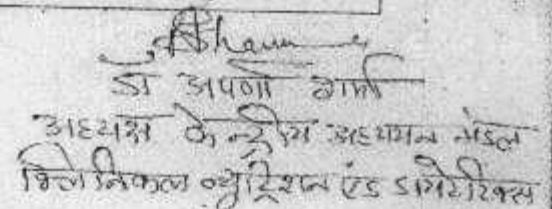 डॉ अपर्णा शर्मा
अध्यक्ष केन्द्रीय अध्ययन मंडल
क्लिनिकल न्युट्रिशन एंड डायेटिक्स